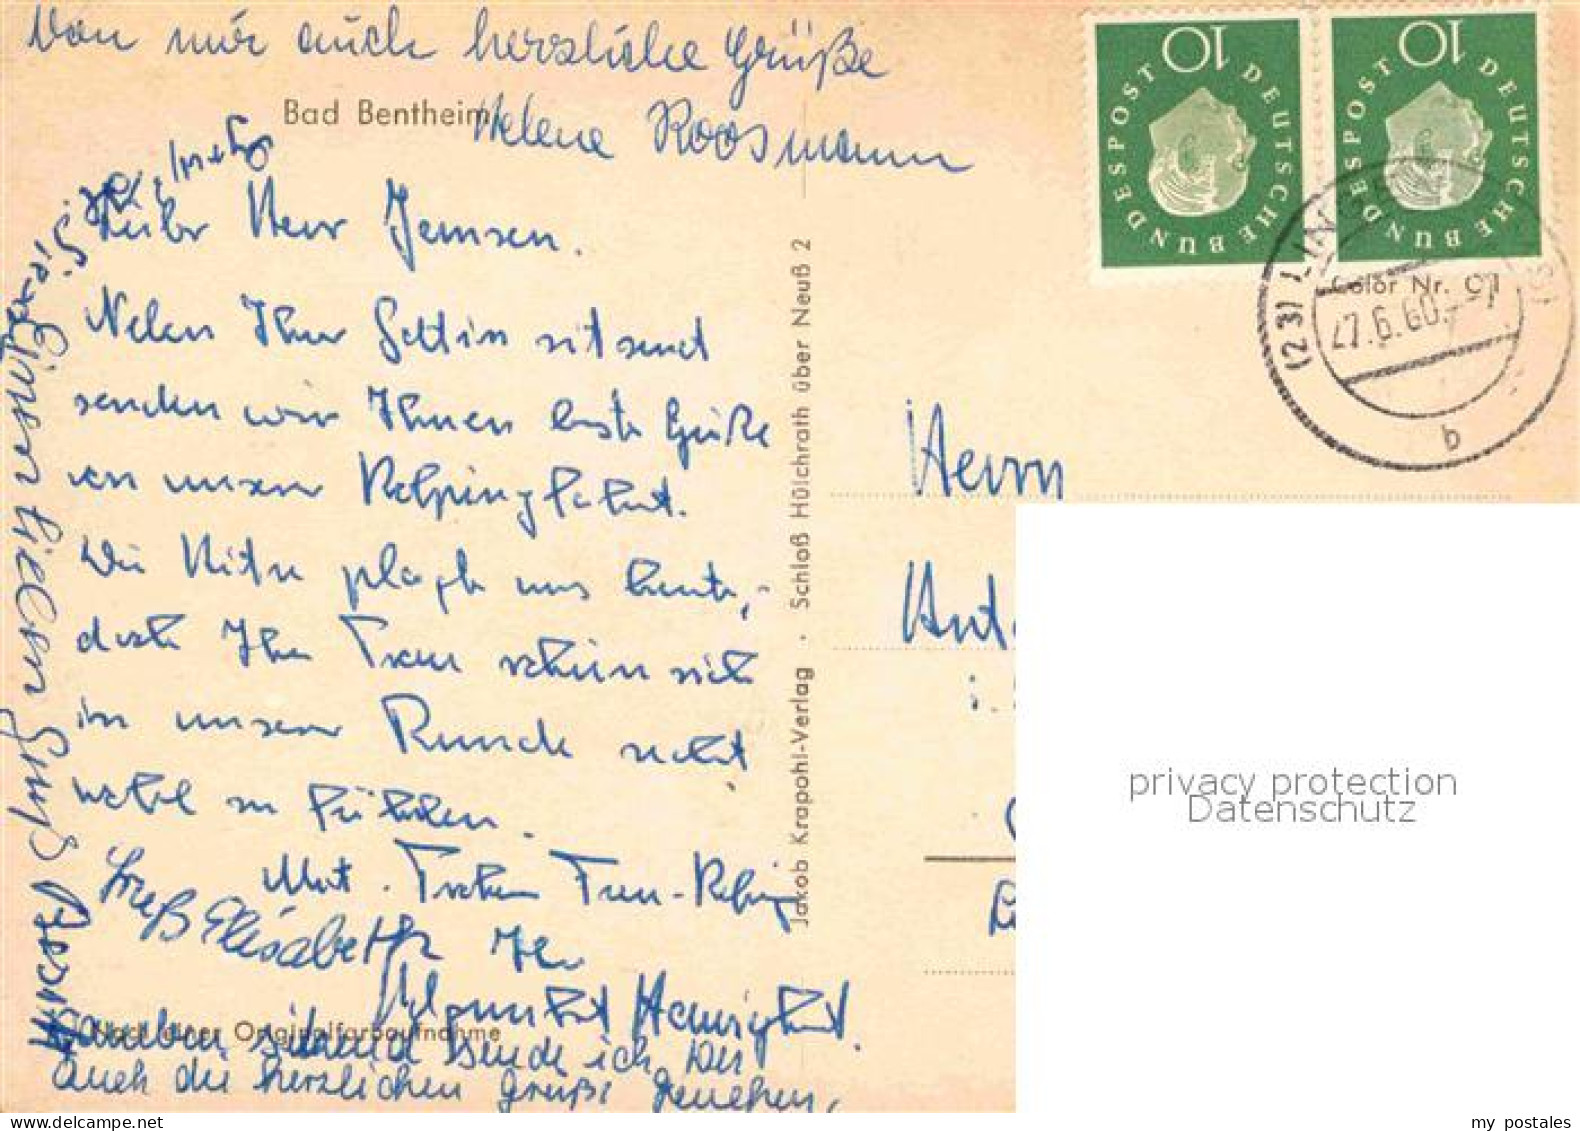 Von mir auch herzliche Grüße
Helene Roosmann
Bad Bentheim
Lieber Herr Jemsen.
Neben Ihrer Gattin sitzend
senden wir Ihnen beste Grüße
von unserer Kolpingfahrt.
Die Hitze plagt uns heute,
doch Ihre Frau scheint sich
in unserer Runde recht
wohl zu fühlen.
Mit Frohem Treu-Kolping
Ihr
Gruß Elisabeth
Nach einer Originalfarbaufnahme
Daneben sitzend sende ich
auch die herzlichen Grüße
einen lieben Gruß
Jakob Krapohl-Verlag · Schloß Hülchrath über Neuß 2
10 DEUTSCHE BUNDESPOST
10 DEUTSCHE BUNDESPOST
(23) LINGEN
27.6.60
b
Color Nr. C 1
Herrn
privacy protection
Datenschutz
my postales